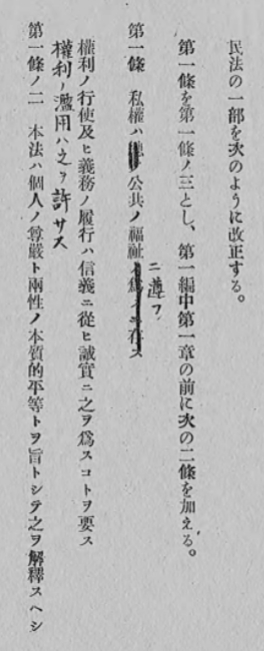 民法の一部を次のように改正する。
第一條を第一條ノ三とし、第一編中第一章の前に次の二條を加える。
第一條 私權ハ公共ノ福祉ニ遵フ
權利ノ行使及ヒ義務ノ履行ハ信義ニ從ヒ誠實ニ之ヲ爲スコトヲ要ス
權利ノ濫用ハ之ヲ許サス
第一條ノ二 本法ハ個人ノ尊嚴ト兩性ノ本質的平等トヲ旨トシテ之ヲ解釋スヘシ